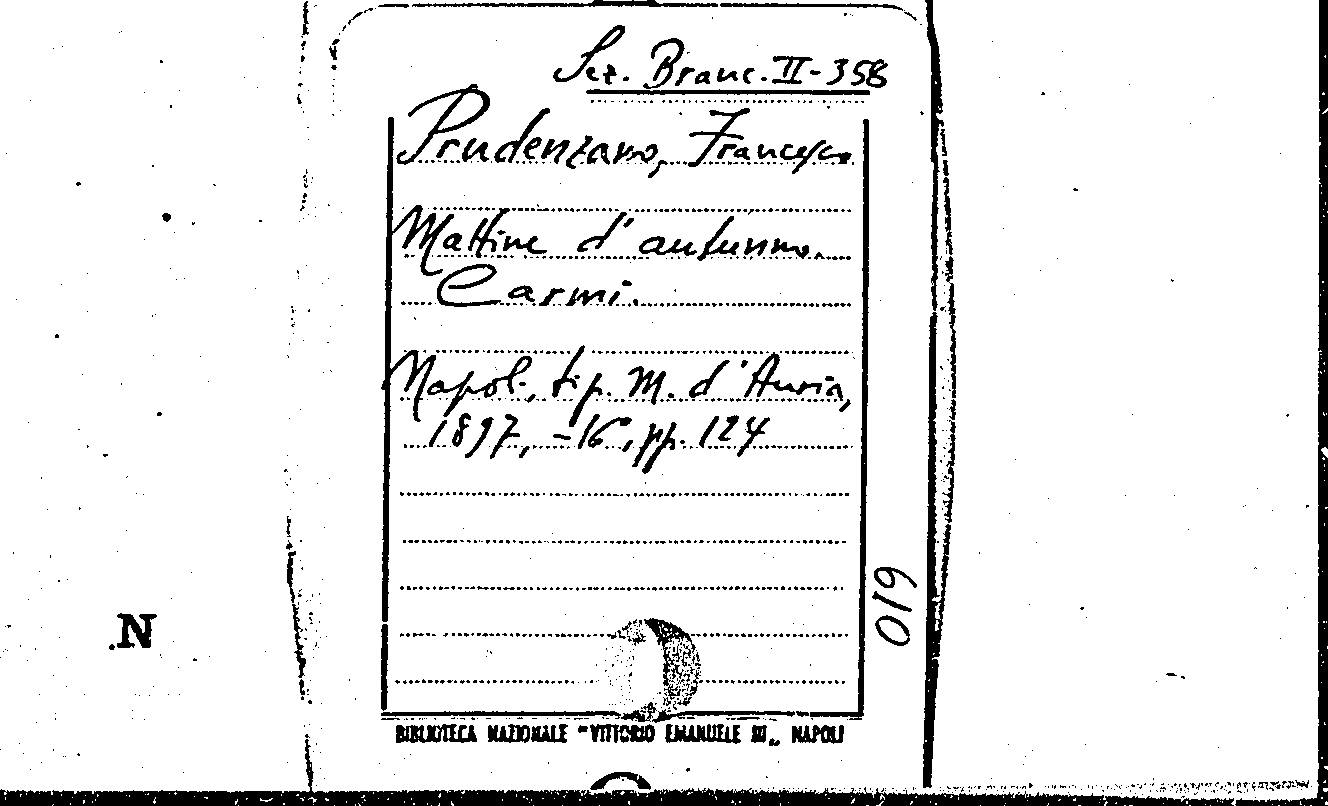 Sez. Branc. II-358
Prudenzano, Francesco
Mattine d'autunno.
Carmi.
Napoli, tip. M. d'Auria,
1897, -16°, pp. 124
019
N
BIBLIOTECA NAZIONALE "VITTORIO EMANUELE III„ NAPOLI